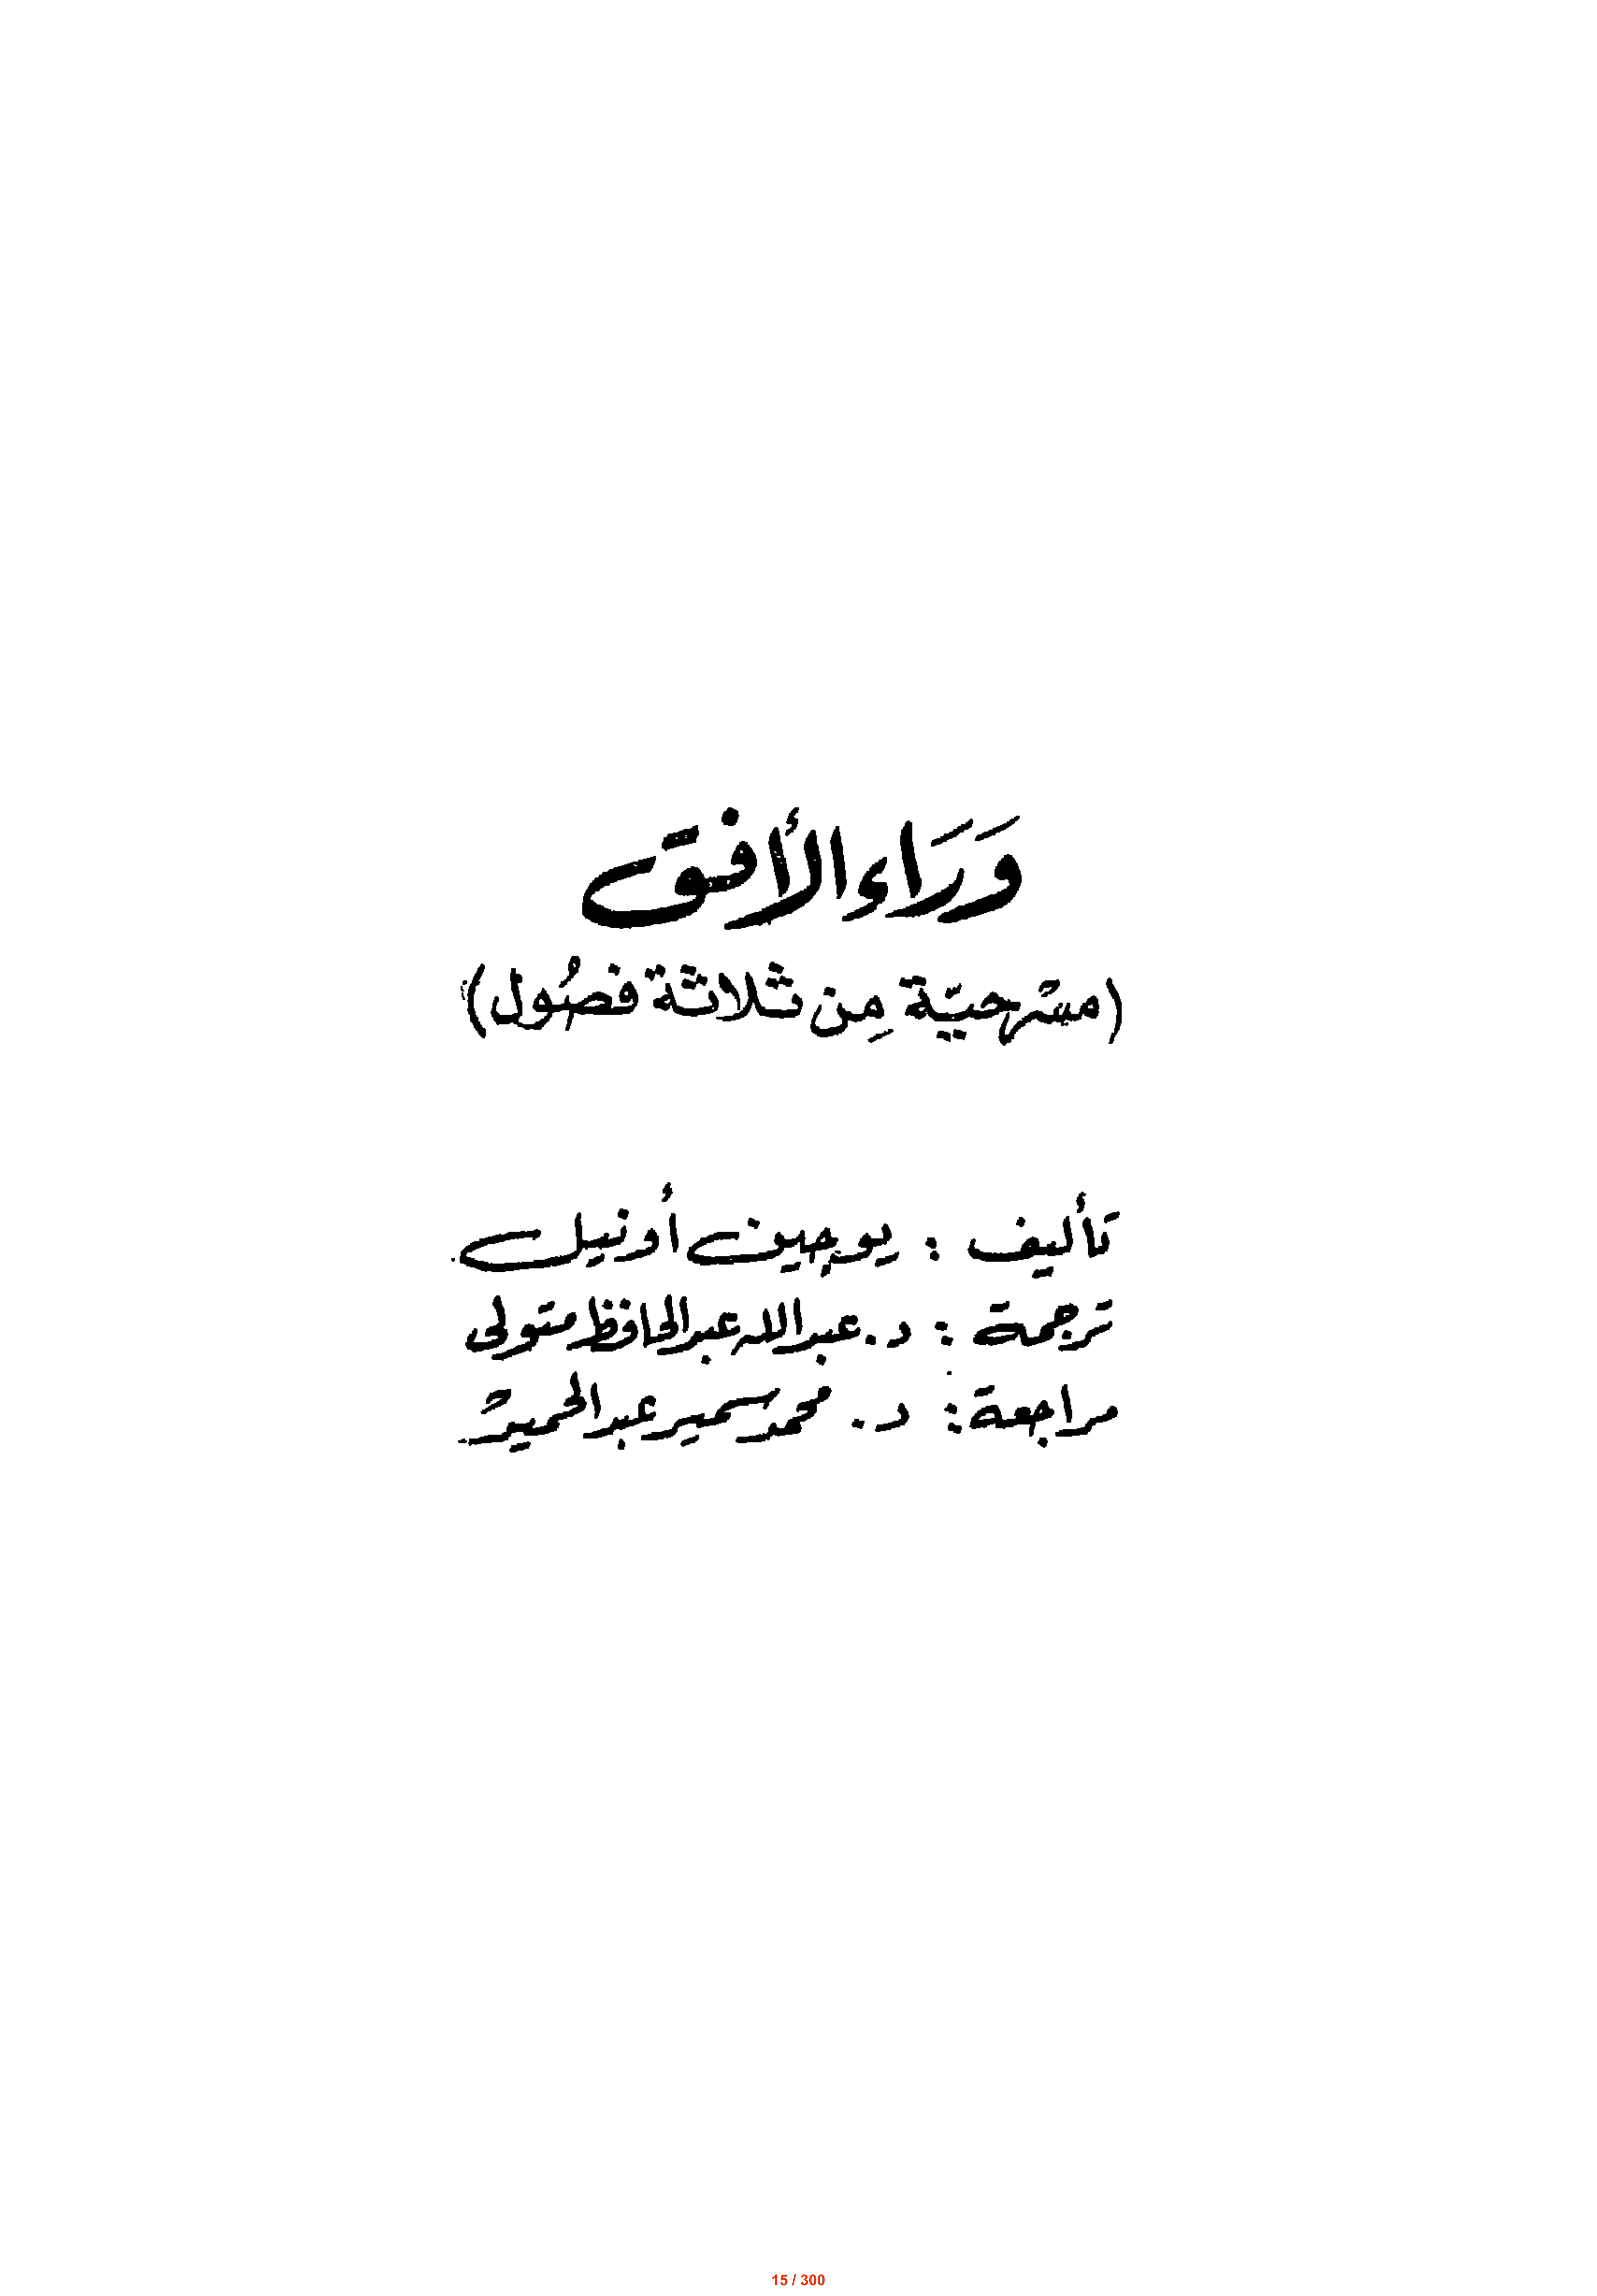 وَرَاء الأفق
(مسْرحيّة مِن ثلاثة فصُول)
تأليف : يوجين أونيل
ترجمة : د. عبد الله عبد الحافظ متولى
مراجعة : د. محمد سمير عبد الحميد
15 / 300